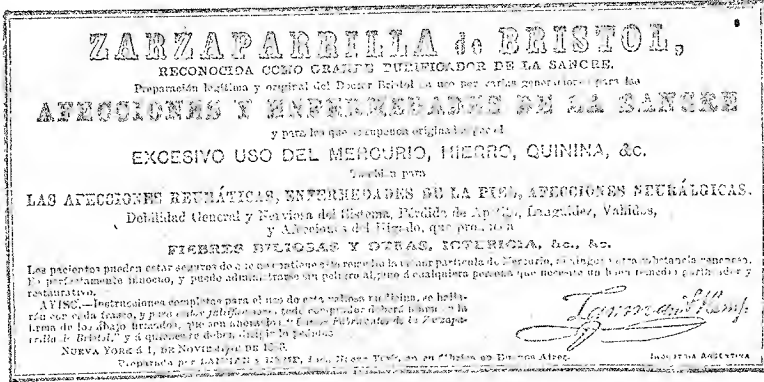 ZARZAPARRILLA de BRISTOL,
RECONOCIDA COMO GRANDE PURIFICADOR DE LA SANGRE.
Preparación legítima y original del Doctor Bristol en uso por varias generaciones para las
AFECCIONES Y ENFERMEDADES DE LA SANGRE
y para las que
EXCESIVO USO DEL MERCURIO, HIERRO, QUININA, &c.
También para
LAS AFECCIONES REUMÁTICAS, ENFERMEDADES DE LA PIEL, AFECCIONES NEURÁLGICAS.
Debilidad General y Nerviosa del Sistema, Pérdida de Languidez, Vahidos,
y Afecciones del Hígado, que
FIEBRES BILIOSAS Y OTRAS, ICTERICIA, &c., &c.
Los pacientes pueden estar seguros de que no contiene este remedio la menor partícula de Mercurio, ni ninguna otra substancia venenosa.
Es perfectamente inocuo, y puede administrarse sin peligro alguno á cualquiera persona que necesite un buen remedio purificador y
restaurativo.
AVISO.—Instrucciones completas para el uso de esta valiosa medicina, se halla-
rán con cada frasco, y para evitar falsificaciones, todo comprador deberá la
firma de los abajo firmados, que son ahora los "Únicos Fabricantes de la Zarzapa-
rrilla de Bristol," y á quienes se deben dirigir los pedidos.
NUEVA YORK á 1, DE NOVIEMBRE DE
Preparada por LANMAN y KEMP, Nueva York, en su en Buenos Aires.
Lanman y Kemp
INDUSTRIA ARGENTINA